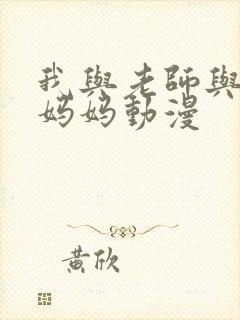 我與老師與
媽媽動漫
黃欣